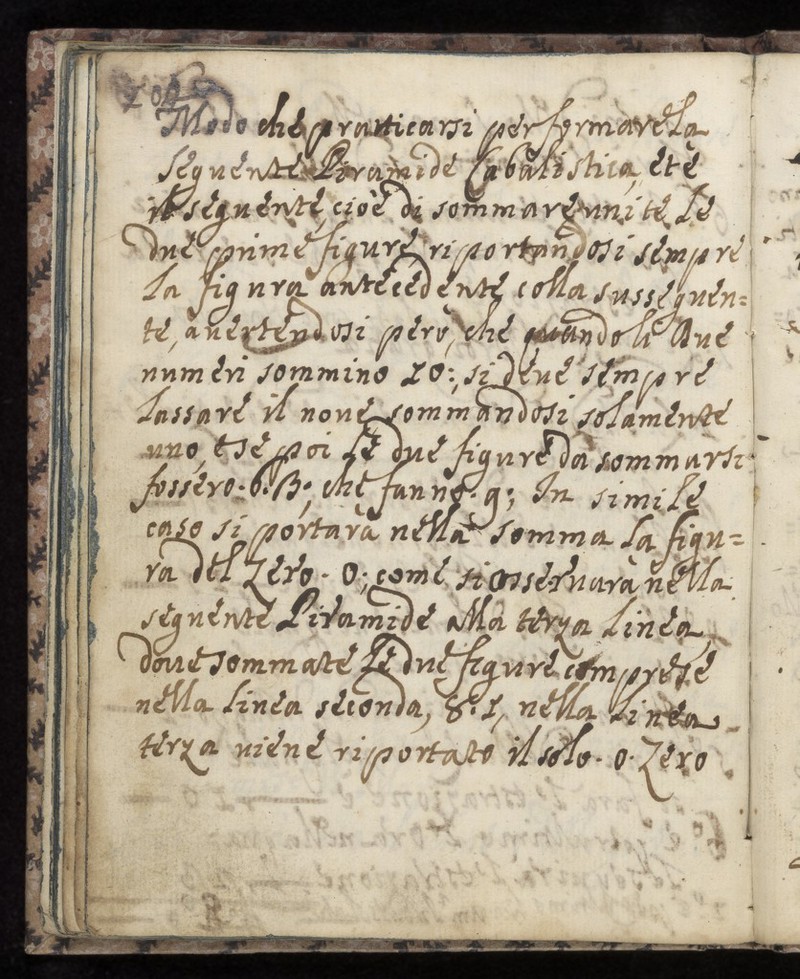 Modo che practicarsi per formare la
seguente Piramide Cabalistica, et è
il seguente, cioè di sommare unite le
due prime figure riportandosi sempre
la figura antecedente colla susseguen=
te, auertendosi però, che quando li due
numeri sommino 10:, si deue sempre
lassare il noue sommandosi solamente
uno, e se poi le due figure da sommarsi
fossero. 6. 3; che fanno. 9; In simile
caso si portarà nella somma la figu=
ra del Zero. 0; come si osseruarà nella
seguente Piramide alla terza linea,
doue sommate le due figure comprese
nella linea seconda, 8. 1, nella linea
terza uiene riportato il solo. 0. Zero